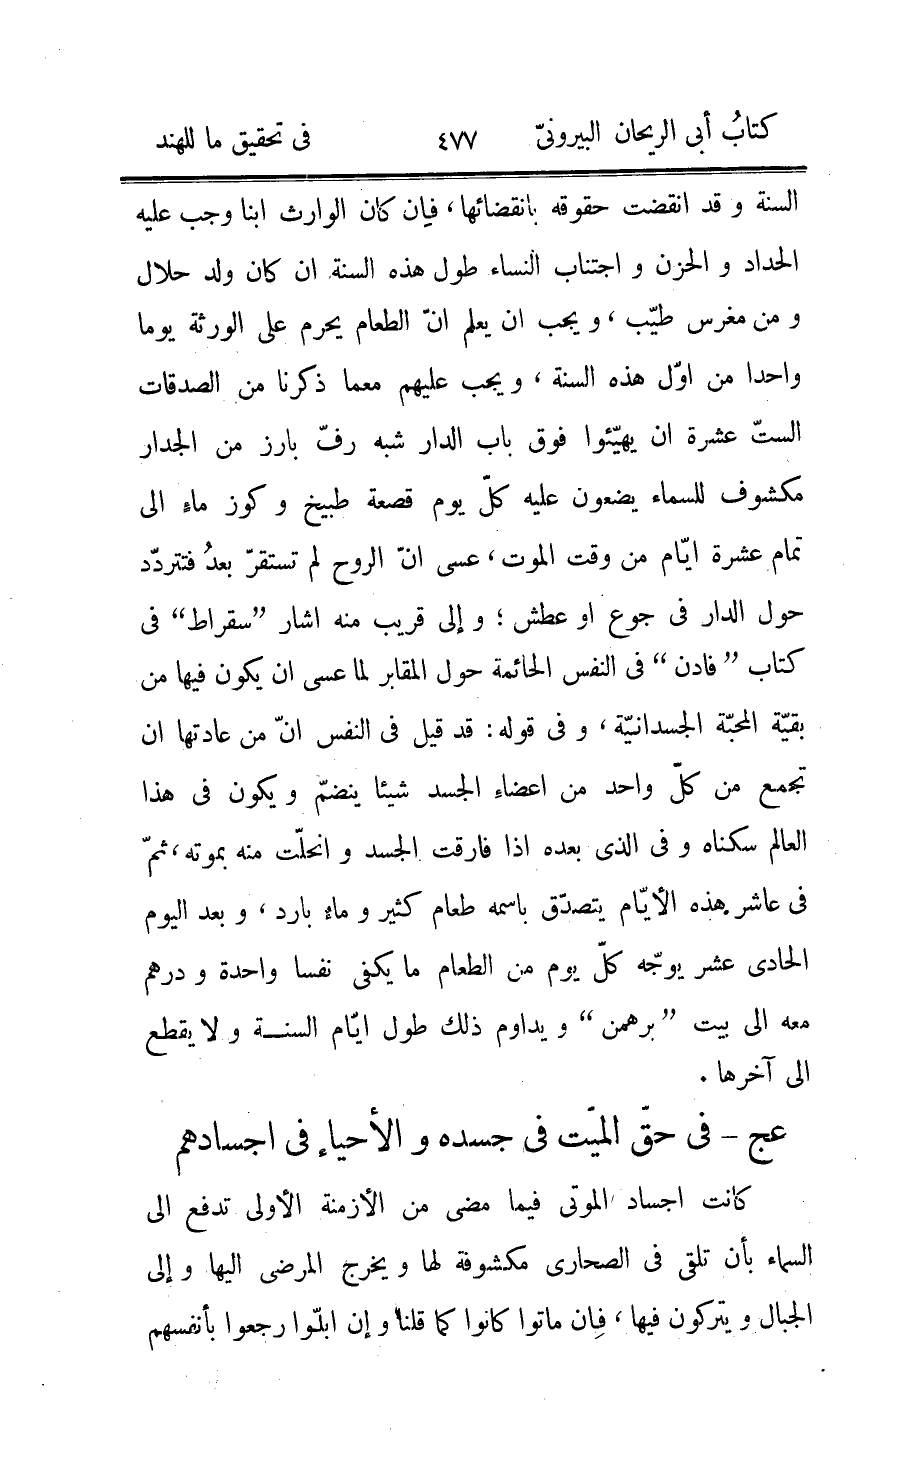 كتابُ أبى الريحان البيرونىّ ٤٧٧ فى تحقيق ما للهند
السنة و قد انقضت حقوقه بانقضائها، فإن كان الوارث ابنا وجب عليه
الحداد و الحزن و اجتناب النساء طول هذه السنة ان كان ولد حلال
و من مغرس طيّب، و يجب ان يعلم انّ الطعام يحرم على الورثة يوما
واحدا من اوّل هذه السنة، و يجب عليهم معما ذكرنا من الصدقات
الستّ عشرة ان يهيّئوا فوق باب الدار شبه رفّ بارز من الجدار
مكشوف للسماء يضعون عليه كلّ يوم قصعة طبيخ و كوز ماء الى
تمام عشرة ايّام من وقت الموت، عسى انّ الروح لم تستقرّ بعدُ فتتردّد
حول الدار فى جوع او عطش؛ و إلى قريب منه اشار ”سقراط“ فى
كتاب ”فادن“ فى النفس الحائمة حول المقابر لما عسى ان يكون فيها من
بقيّة المحبّة الجسدانيّة، و فى قوله: قد قيل فى النفس انّ من عادتها ان
تجمع من كلّ واحد من اعضاء الجسد شيئا ينضمّ و يكون فى هذا
العالم سكناه و فى الذى بعده اذا فارقت الجسد و انحلّت منه بموته، ثمّ
فى عاشر هذه الأيّام يتصدّق باسمه طعام كثير و ماء بارد، و بعد اليوم
الحادى عشر يوجّه كلّ يوم من الطعام ما يكفى نفسا واحدة و درهم
معه الى بيت ”برهمن“ و يداوم ذلك طول ايّام السنـــة و لا يقطع
الى آخرها.
عج - فى حقّ الميّت فى جسده و الأحياء فى اجسادهم
كانت اجساد الموتى فيما مضى من الأزمنة الأولى تدفع الى
السماء بأن تلقى فى الصحارى مكشوفة لها و يخرج المرضى اليها و إلى
الجبال و يتركون فيها، فإن ماتوا كانوا كما قلنا و إن ابلّوا رجعوا بأنفسهم